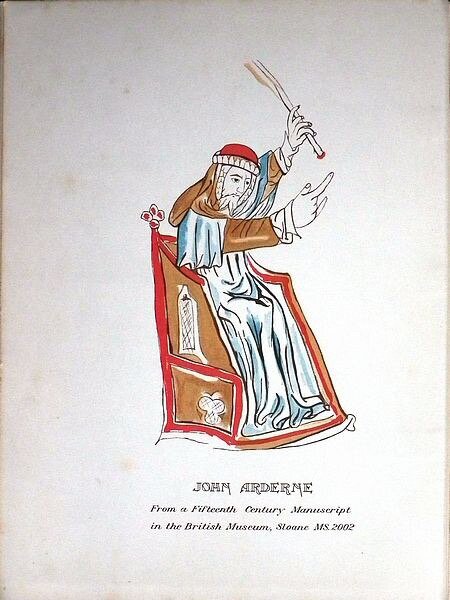 JOHN ARDERNE
From a Fifteenth Century Manuscript
in the British Museum, Sloane MS. 2002